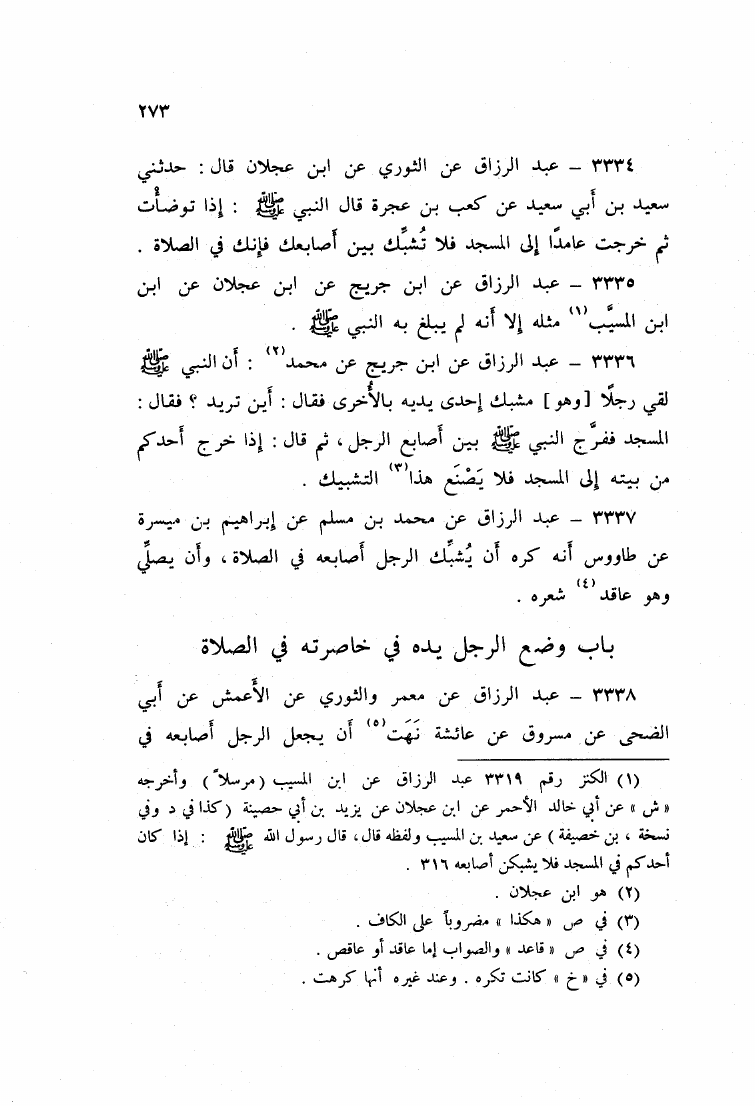 ٢٧٣
٣٣٣٤ – عبد الرزاق عن الثوري عن ابن عجلان قال : حدثني
سعيد بن أبي سعيد عن كعب بن عجرة قال النبي ﷺ : إذا توضأْت
ثم خرجت عامدًا إلى المسجد فلا تُشبِّك بين أصابعك فإنك في الصلاة .
٣٣٣٥ – عبد الرزاق عن ابن جريج عن ابن عجلان عن ابن
ابن المسيَّب(١) مثله إلا أنه لم يبلغ به النبي ﷺ .
٣٣٣٦ – عبد الرزاق عن ابن جريج عن محمد(٢) : أن النبي ﷺ
لقي رجلًا [وهو] مشبك إحدى يديه بالأُخرى فقال : أين تريد ؟ فقال :
المسجد ففرَّج النبي ﷺ بين أصابع الرجل ، ثم قال : إذا خرج أحدكم
من بيته إلى المسجد فلا يَصْنَع هذا(٣) التشبيك .
٣٣٣٧ – عبد الرزاق عن محمد بن مسلم عن إبراهيم بن ميسرة
عن طاووس أنه كره أن يُشبِّك الرجل أصابعه في الصلاة ، وأن يصلِّي
وهو عاقد(٤) شعره .
باب وضع الرجل يده في خاصرته في الصلاة
٣٣٣٨ – عبد الرزاق عن معمر والثوري عن الأعمش عن أبي
الضحى عن مسروق عن عائشة نَهَت(٥) أن يجعل الرجل أصابعه في
(١) الكنز رقم ٣٣١٩ عبد الرزاق عن ابن المسيب (مرسلاً) وأخرجه
«ش» عن أبي خالد الأحمر عن ابن عجلان عن يزيد بن أبي حصينة (كذا في د وفي
نسخة ، بن خصيفة) عن سعيد بن المسيب ولفظه قال ، قال رسول الله ﷺ : إذا كان
أحدكم في المسجد فلا يشبكن أصابعه ٣١٦ .
(٢) هو ابن عجلان .
(٣) في ص «هكذا» مضروباً على الكاف .
(٤) في ص «قاعد» والصواب إما عاقد أو عاقص .
(٥) في «خ» كانت تكره . وعند غيره أنها كرهت .